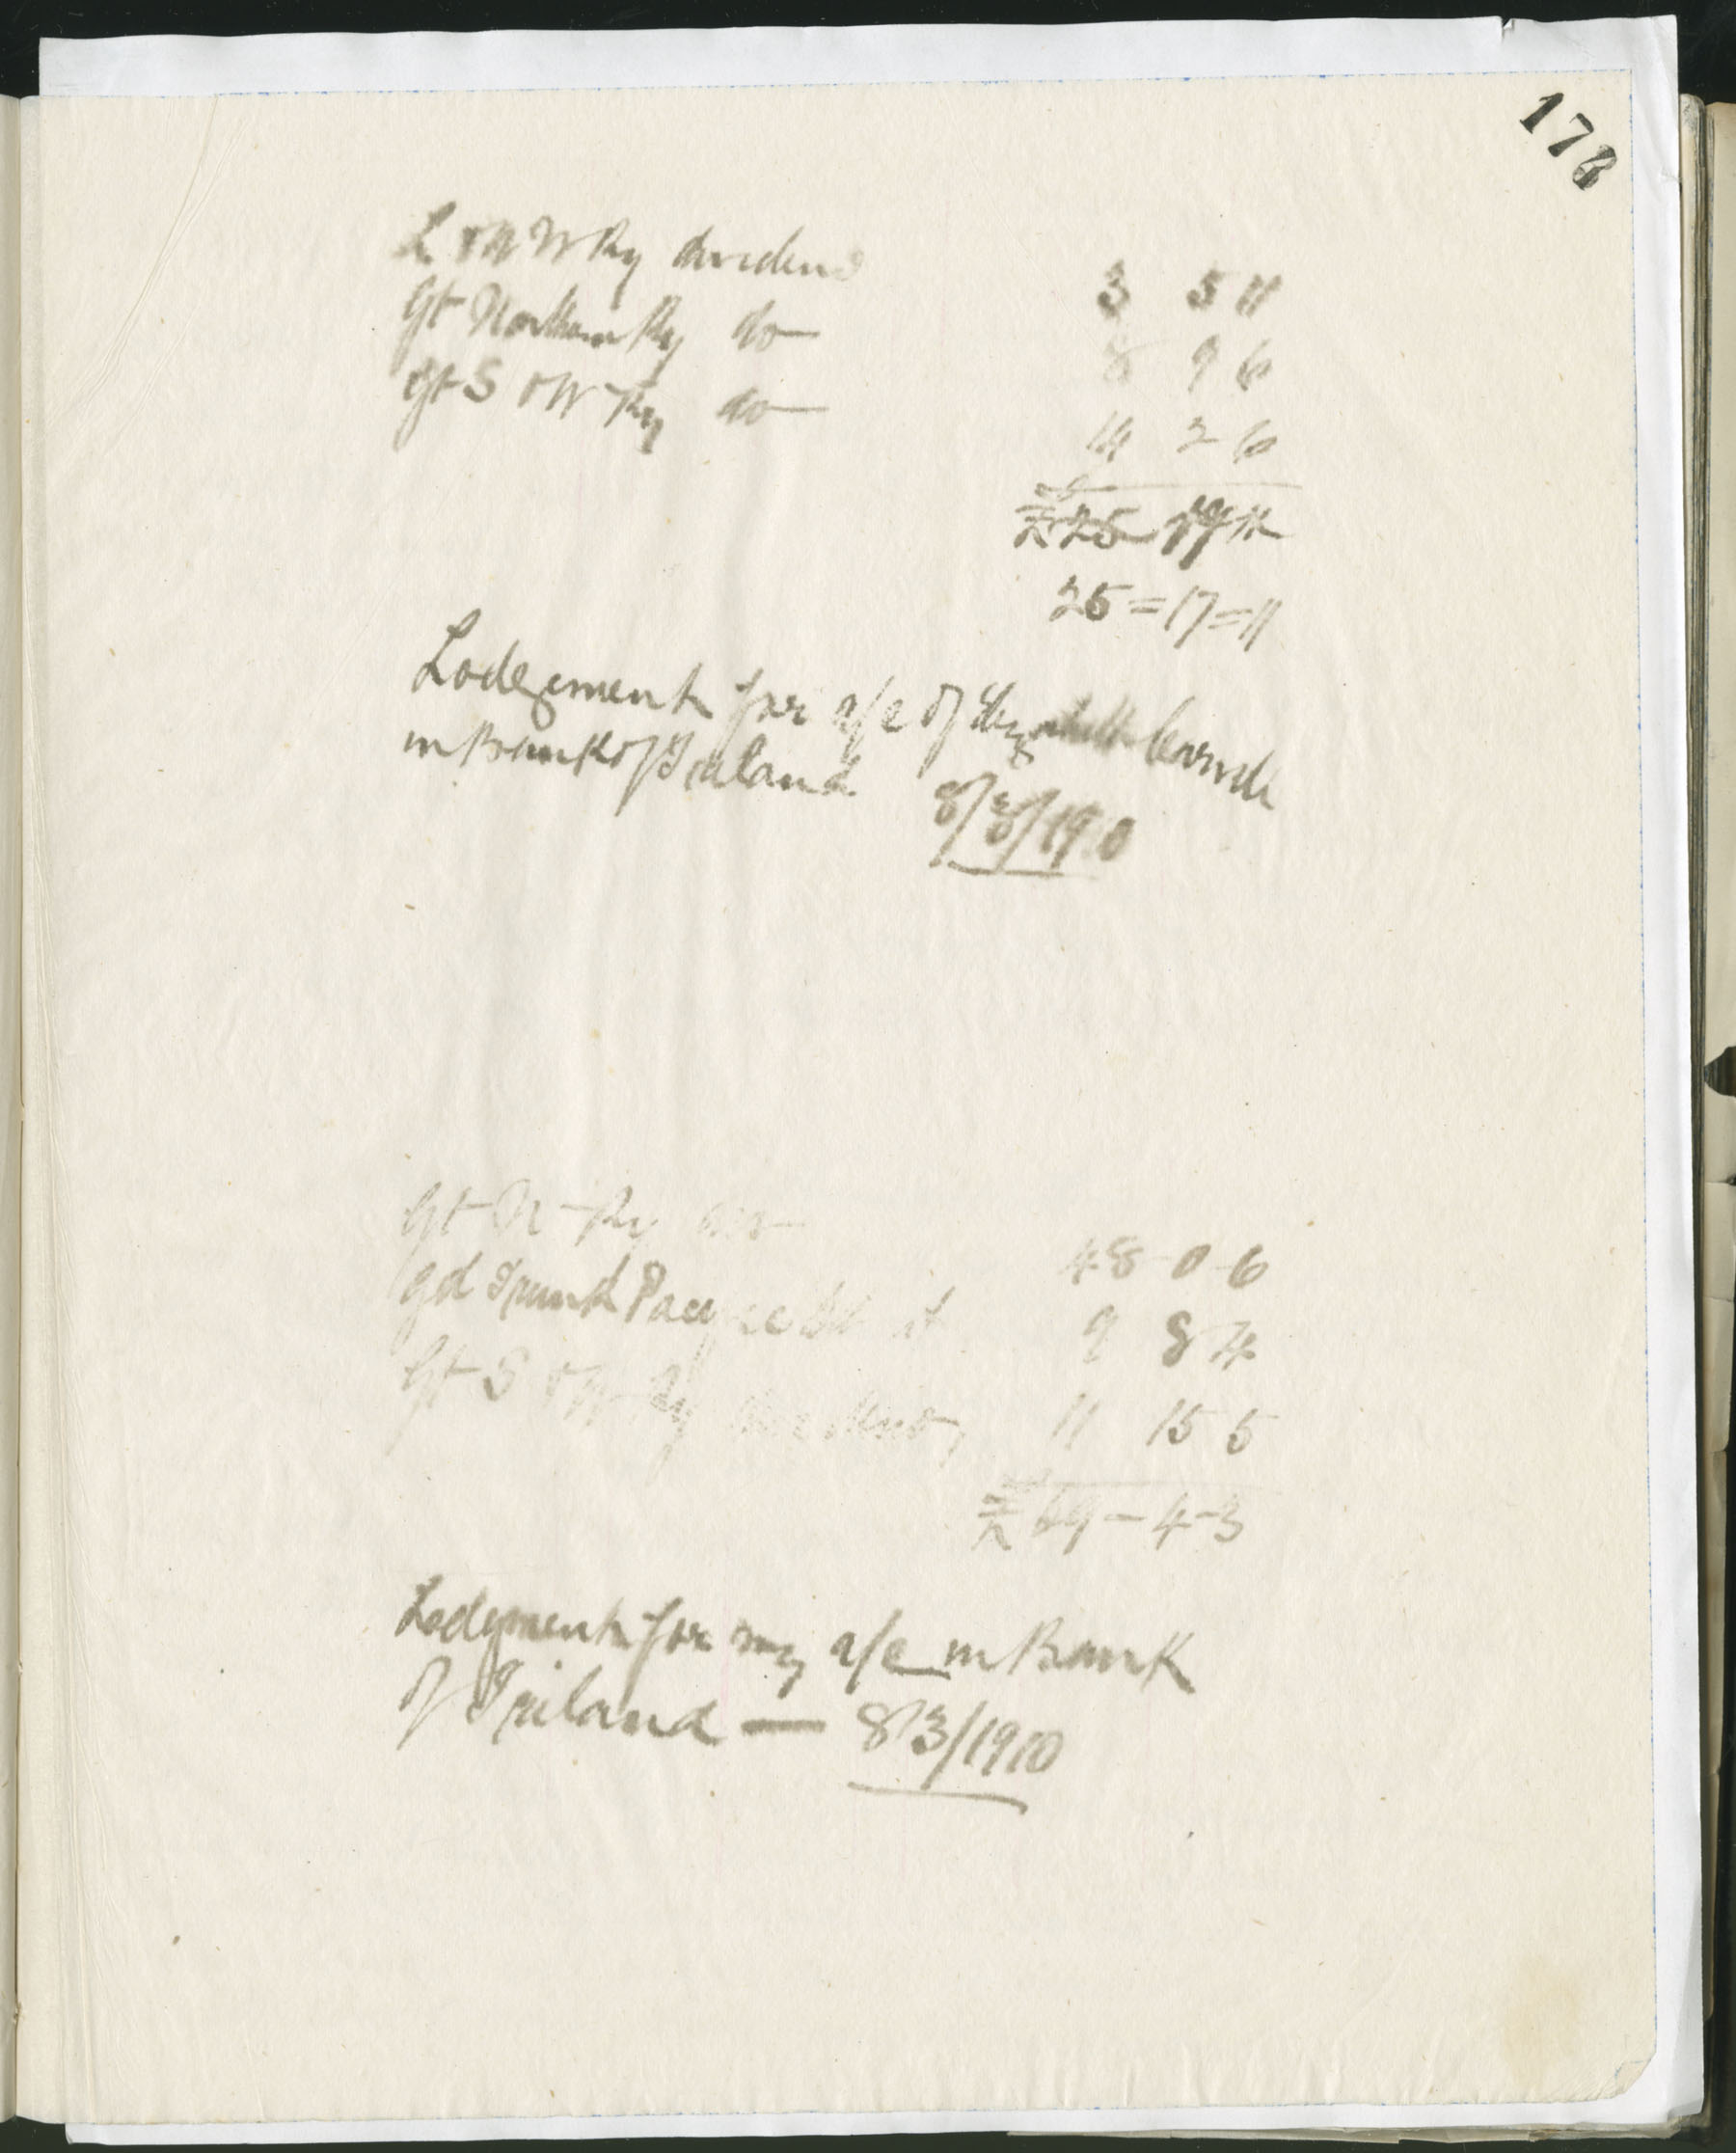 178
L & N W Ry dividend 3 5 11
Gt Northern Ry do 8 9 6
Gt S & W Ry do 14 2 6
£25 19 11
25=17=11
Lodgement for a/c of Elizabeth
in Bank of Ireland 8/3/1910
Gt N Ry 48 0 6
Gd Trunk Pacific 9 8 4
Gt S & W Ry dividend 11 15 5
£69-4-3
Lodgment for my a/c in Bank
of Ireland — 8/3/1910